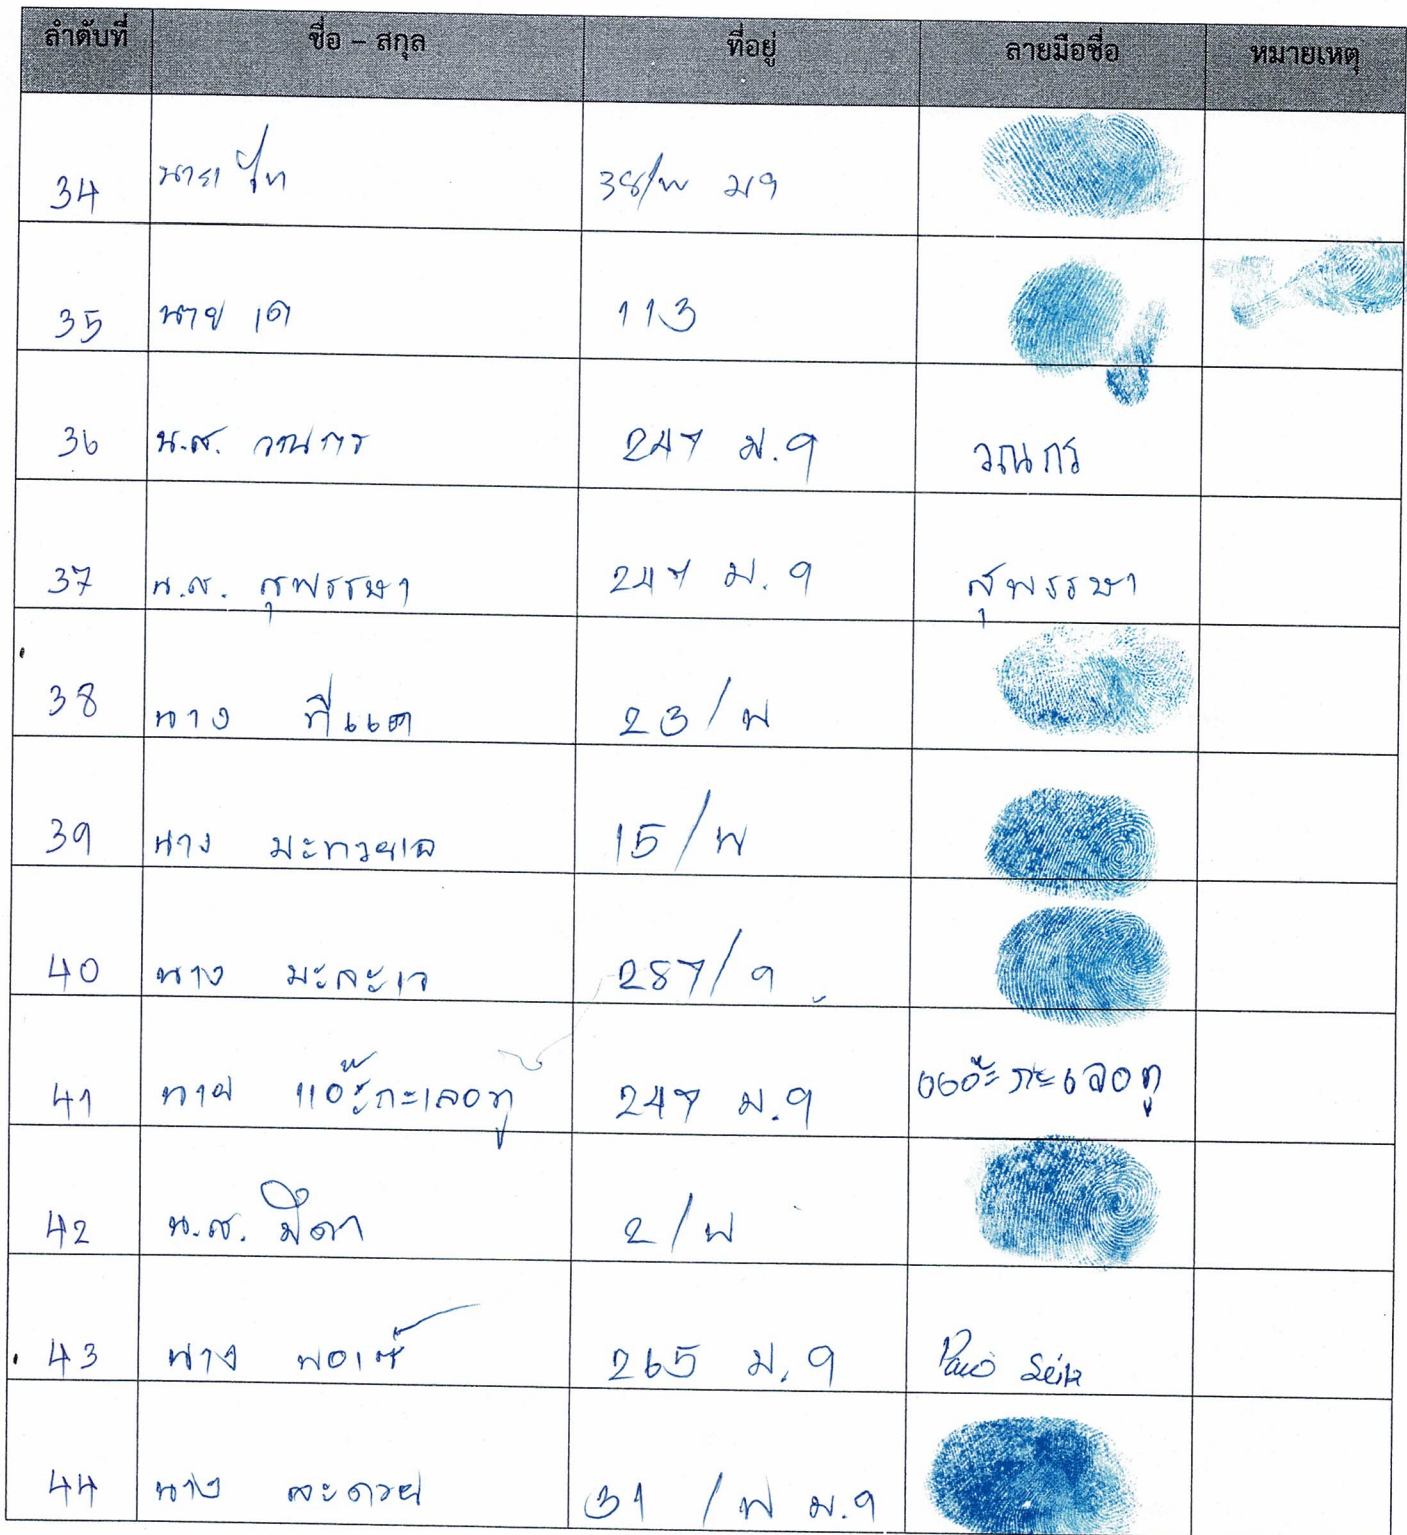 ลำดับที่ ชื่อ – สกุล ที่อยู่ ลายมือชื่อ หมายเหตุ
34 นาย 38/พ ม9
35 นาย เด 113
36 น.ส. วานกร 247 ม.9 วณกร
37 น.ส. สุพรรษา 247 ม.9 สุพรรษา
38 นาง ที่แด 23/พ
39 นาง มะทวยเล 15/พ
40 นาง มะละเว 287/9
41 นาย 247 ม.9
42 น.ส. มึดา 2/พ
43 นาง พอเซ์ 265 ม.9
44 นาง ละดวย 31 /พ ม.9